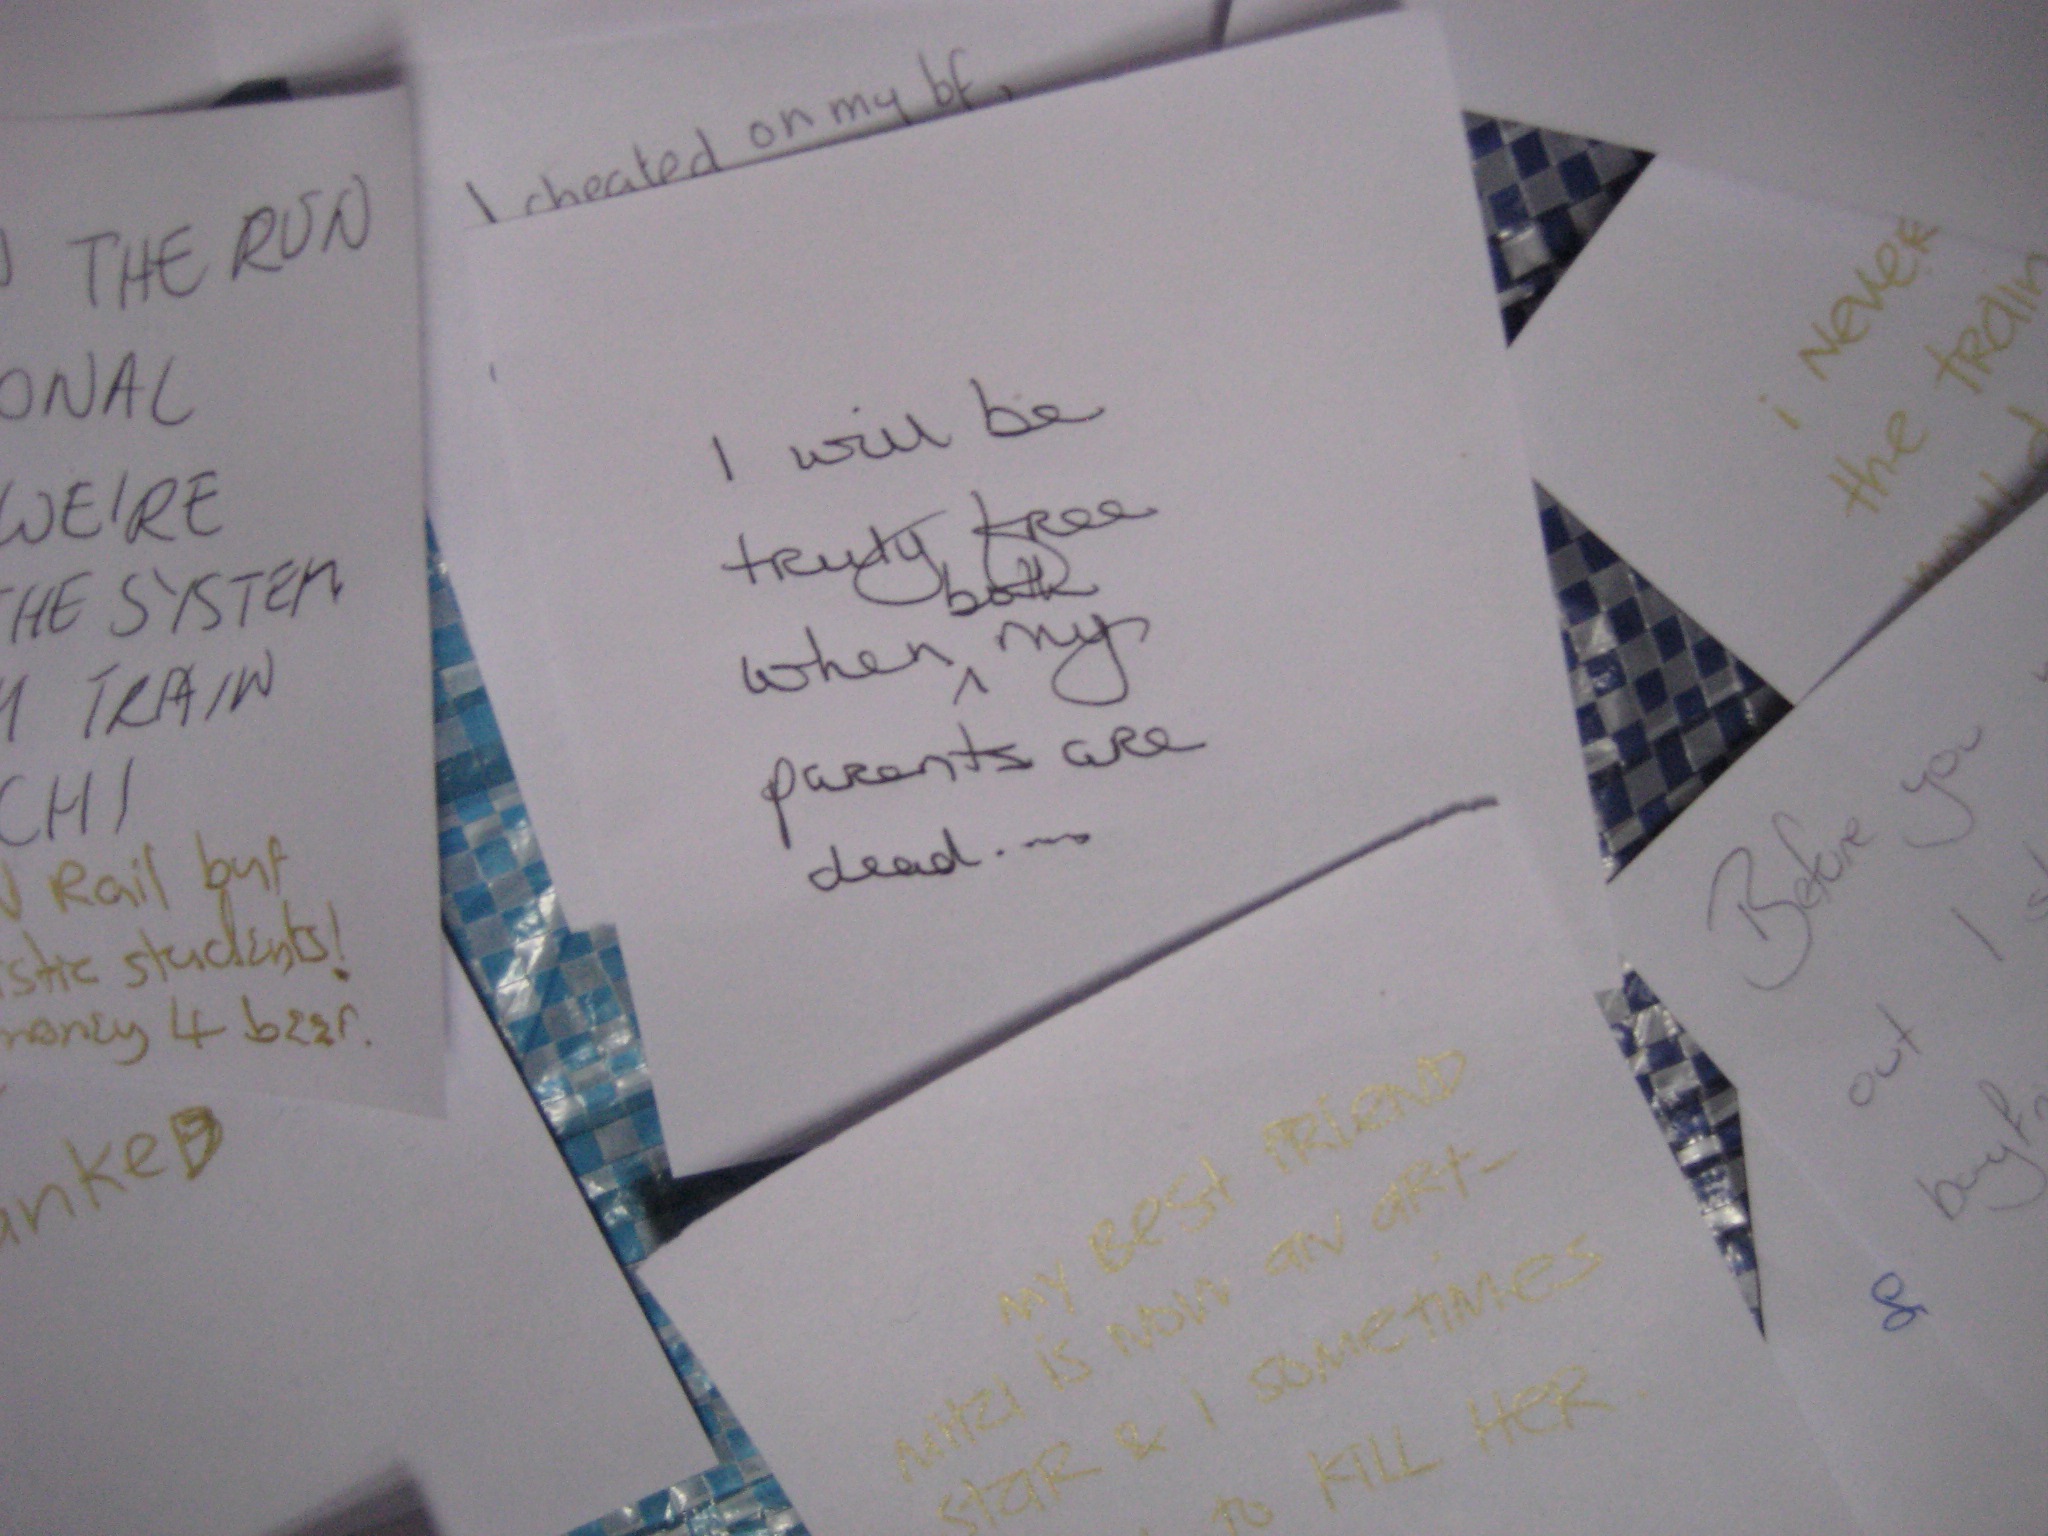 I cheated on my bf,
THE RUN
ONAL
WE'RE
THE SYSTEM
TRAIN
CH!
Rail but
istic students!
money 4 beer.
ankeD
I will be
truly free
both
when ^ my
parents are
dead....
i NEVER
the train
Before you
out I
&
MY BEST FRIEND
MITZI IS NOW AN ART-
STAR & I SOMETIMES
TO KILL HER.